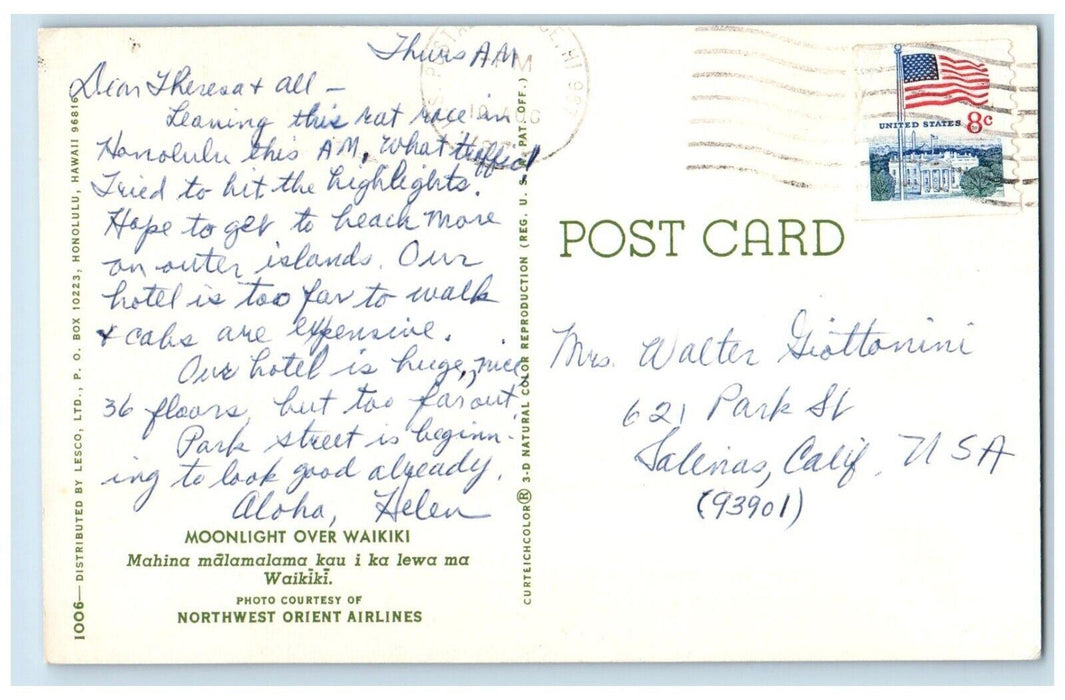 Thurs AM
Dear Theresa & all —
Leaving this rat race in
Honolulu this AM, What traffic!
Tried to hit the highlights.
Hope to get to beach more
on outer islands. Our
hotel is too far to walk
& cabs are expensive.
Our hotel is huge, nice,
36 floors, but too far out.
Park Street is beginn-
ing to look good already.
Aloha, Helen
MOONLIGHT OVER WAIKIKI
Mahina mālamalama kau i ka lewa ma
Waikīkī.
PHOTO COURTESY OF
NORTHWEST ORIENT AIRLINES
1006—DISTRIBUTED BY LESCO, LTD., P. O. BOX 10223, HONOLULU, HAWAII 96816
CURTEICHCOLOR® 3-D NATURAL COLOR REPRODUCTION (REG. U. S. PAT. OFF.)
UNITED STATES 8c
POST CARD
Mrs. Walter Giottonini
621 Park St
Salinas, Calif. USA
(93901)